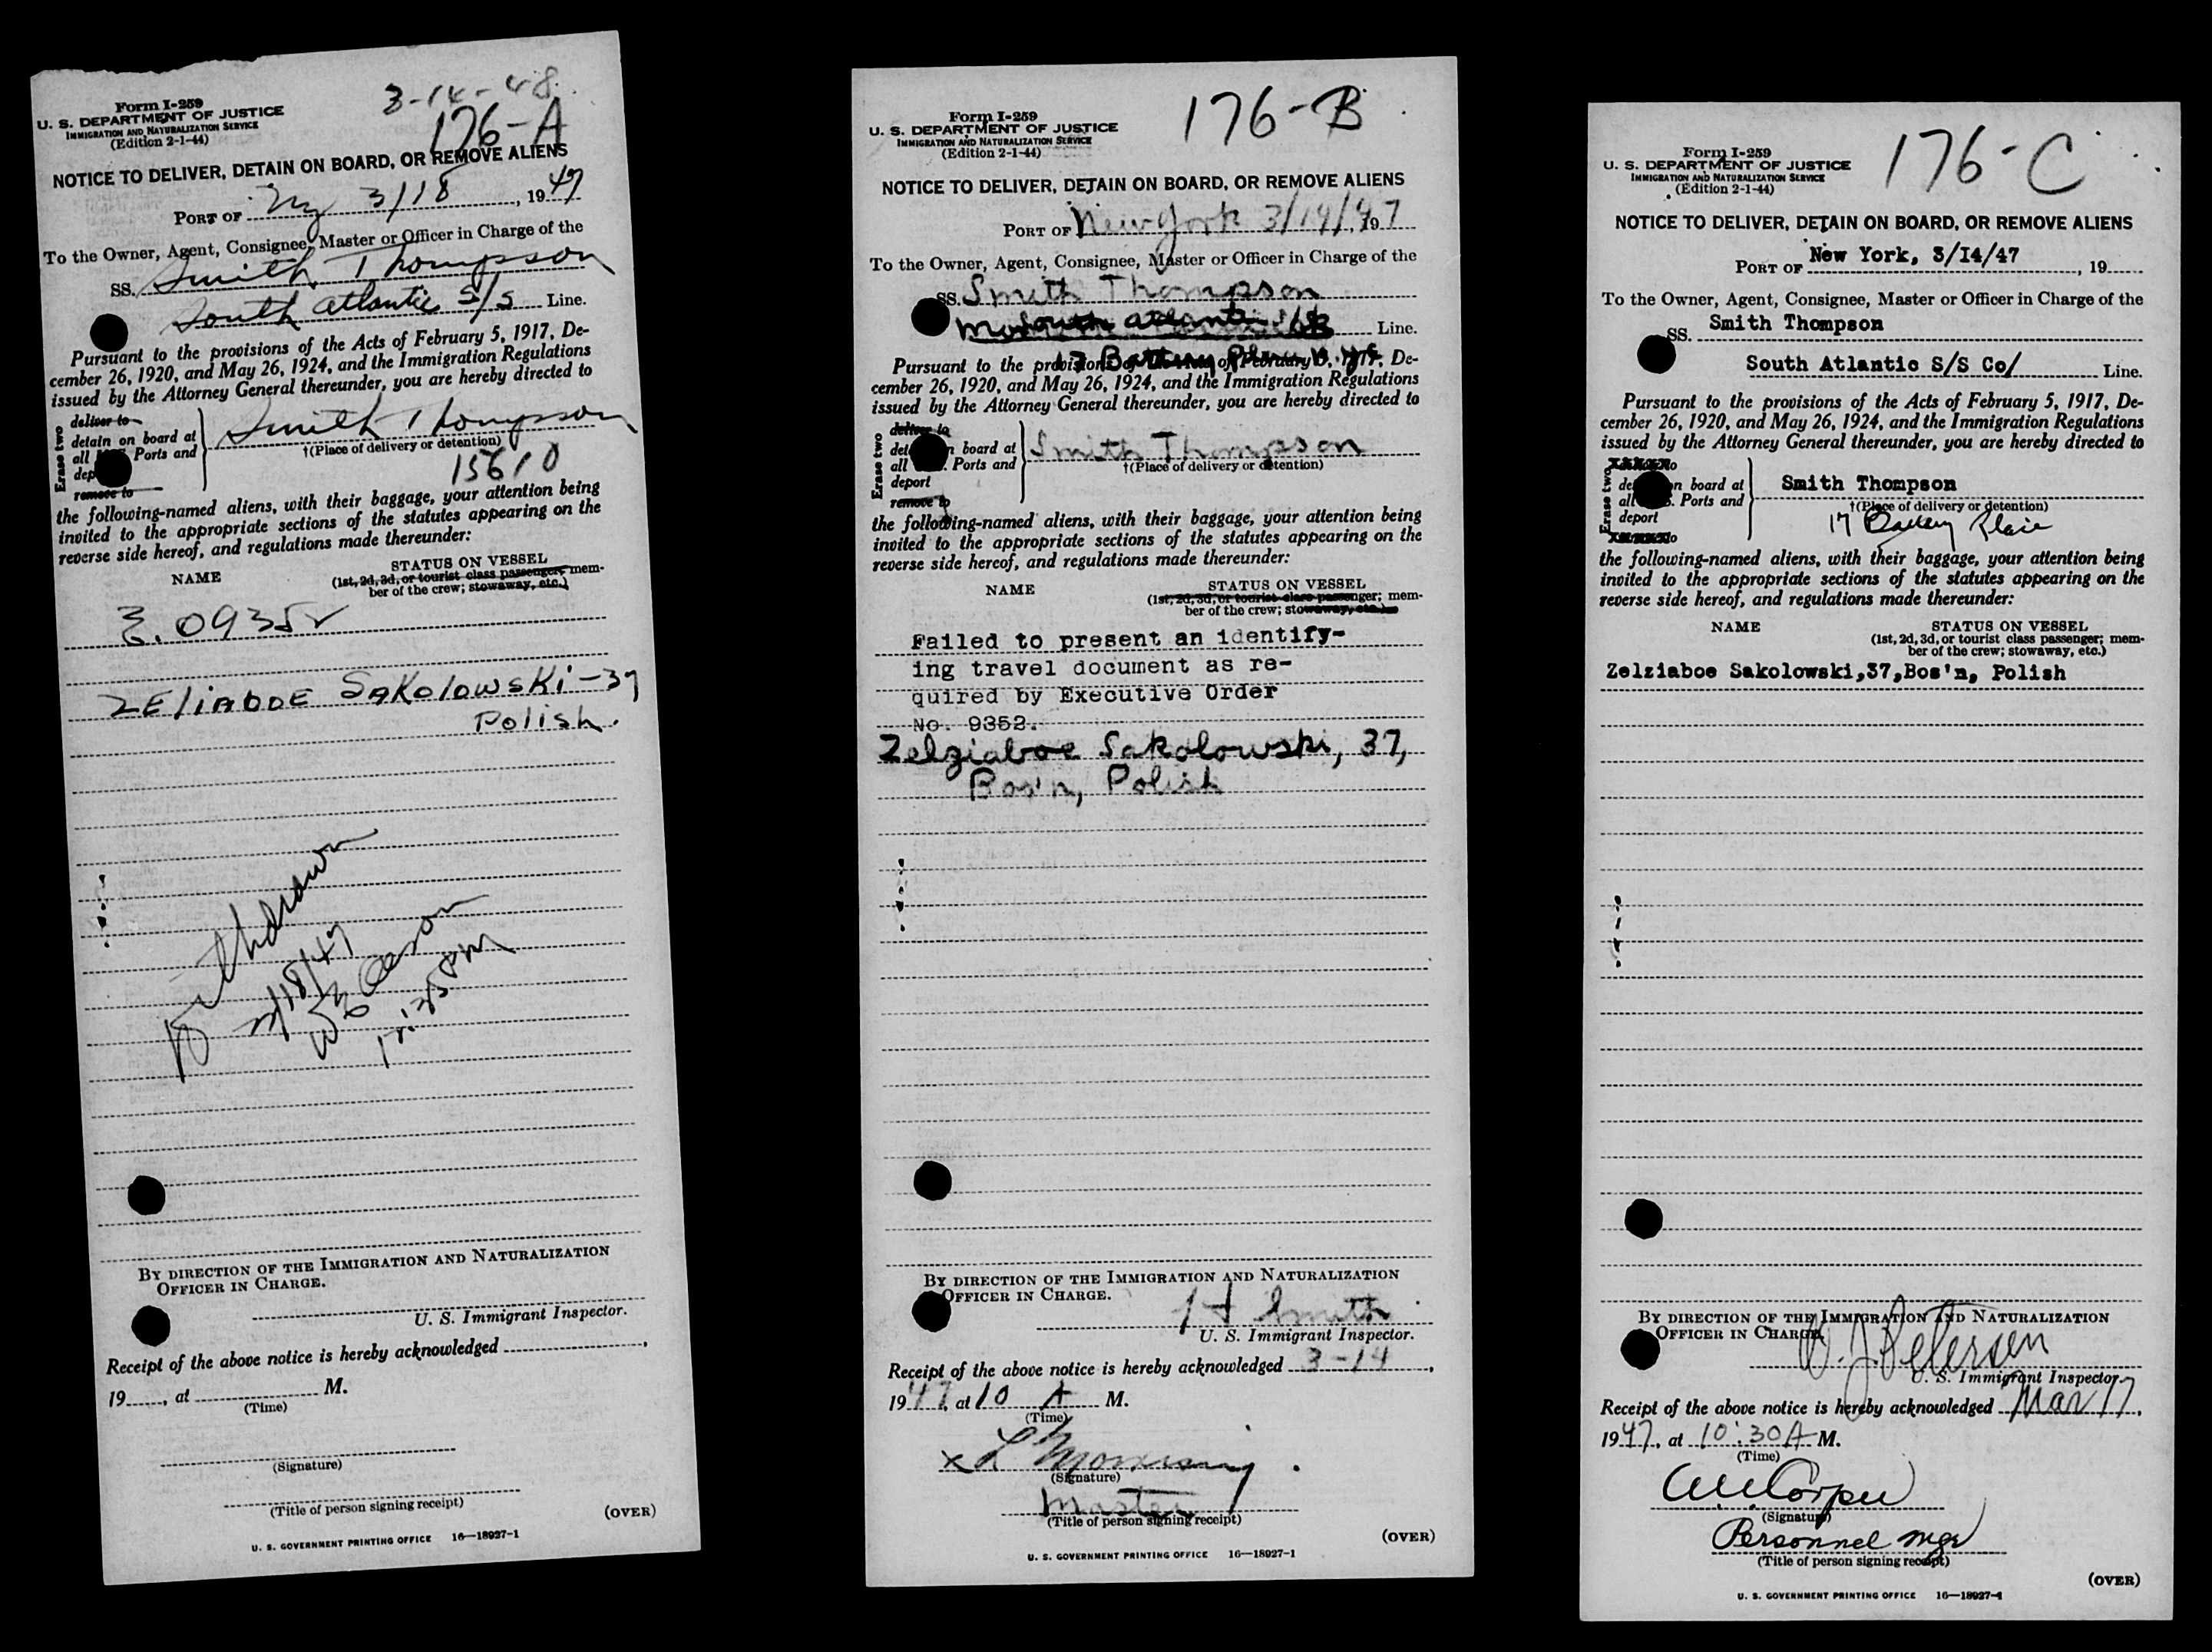 3-14-48
176-A
Form I-259
U. S. DEPARTMENT OF JUSTICE
IMMIGRATION AND NATURALIZATION SERVICE
(Edition 2-1-44)
NOTICE TO DELIVER, DETAIN ON BOARD, OR REMOVE ALIENS
PORT OF NY 3/18, 1947
To the Owner, Agent, Consignee, Master or Officer in Charge of the
SS. Smith Thompson
South Atlantic S/S Line.
Pursuant to the provisions of the Acts of February 5, 1917, De-
cember 26, 1920, and May 26, 1924, and the Immigration Regulations
issued by the Attorney General thereunder, you are hereby directed to
Erase two
deliver to
detain on board at
all Ports and
dep
remove to
Smith Thompson
†(Place of delivery or detention)
15610
the following-named aliens, with their baggage, your attention being
invited to the appropriate sections of the statutes appearing on the
reverse side hereof, and regulations made thereunder:
NAME
STATUS ON VESSEL
(1st, 2d, 3d, or tourist class passenger; mem-
ber of the crew; stowaway, etc.)
ZELIABOE SAKOLOWSKI-37
Polish.
Withdrawn
3/18/47
BY DIRECTION OF THE IMMIGRATION AND NATURALIZATION
OFFICER IN CHARGE.
U. S. Immigrant Inspector.
Receipt of the above notice is hereby acknowledged ,
19 , at M.
(Time)
(Signature)
(Title of person signing receipt)
(OVER)
U. S. GOVERNMENT PRINTING OFFICE 16—18927-1
176-B
Form I-259
U. S. DEPARTMENT OF JUSTICE
IMMIGRATION AND NATURALIZATION SERVICE
(Edition 2-1-44)
NOTICE TO DELIVER, DETAIN ON BOARD, OR REMOVE ALIENS
PORT OF New York 3/14/, 1947
To the Owner, Agent, Consignee, Master or Officer in Charge of the
SS. Smith Thompson
South Atlantic Line.
17 Battery Place N.Y.C.
Pursuant to the provisions of the Acts of February 5, 1917, De-
cember 26, 1920, and May 26, 1924, and the Immigration Regulations
issued by the Attorney General thereunder, you are hereby directed to
Erase two
deliver to
on board at
all Ports and
deport
remove to
Smith Thompson
†(Place of delivery or detention)
the following-named aliens, with their baggage, your attention being
invited to the appropriate sections of the statutes appearing on the
reverse side hereof, and regulations made thereunder:
NAME
STATUS ON VESSEL
(1st, 2d, 3d, or tourist class passenger; mem-
ber of the crew; stowaway, etc.)
Failed to present an identify-
ing travel document as re-
quired by Executive Order
No. 9352.
Zelziaboe Sakolowski, 37,
Bos'n, Polish
BY DIRECTION OF THE IMMIGRATION AND NATURALIZATION
OFFICER IN CHARGE.
Smith
U. S. Immigrant Inspector.
Receipt of the above notice is hereby acknowledged 3-14,
1947, at 10 A M.
(Time)
x L
(Signature)
Master
(Title of person signing receipt)
(OVER)
U. S. GOVERNMENT PRINTING OFFICE 16—18927-1
176-C
Form I-259
U. S. DEPARTMENT OF JUSTICE
IMMIGRATION AND NATURALIZATION SERVICE
(Edition 2-1-44)
NOTICE TO DELIVER, DETAIN ON BOARD, OR REMOVE ALIENS
PORT OF New York, 3/14/47, 19
To the Owner, Agent, Consignee, Master or Officer in Charge of the
SS. Smith Thompson
South Atlantic S/S Co/ Line.
Pursuant to the provisions of the Acts of February 5, 1917, De-
cember 26, 1920, and May 26, 1924, and the Immigration Regulations
issued by the Attorney General thereunder, you are hereby directed to
Erase two
on board at
all Ports and
deport
Smith Thompson
†(Place of delivery or detention)
17 Battery Place
the following-named aliens, with their baggage, your attention being
invited to the appropriate sections of the statutes appearing on the
reverse side hereof, and regulations made thereunder:
NAME
STATUS ON VESSEL
(1st, 2d, 3d, or tourist class passenger; mem-
ber of the crew; stowaway, etc.)
Zelziaboe Sakolowski,37,Bos'n, Polish
BY DIRECTION OF THE IMMIGRATION AND NATURALIZATION
OFFICER IN CHARGE.
W. J. Petersen
U. S. Immigrant Inspector.
Receipt of the above notice is hereby acknowledged Mar 17,
1947, at 10:30 A M.
(Time)
(Signature)
Personnel Mgr
(Title of person signing receipt)
(OVER)
U. S. GOVERNMENT PRINTING OFFICE 16—18927-1